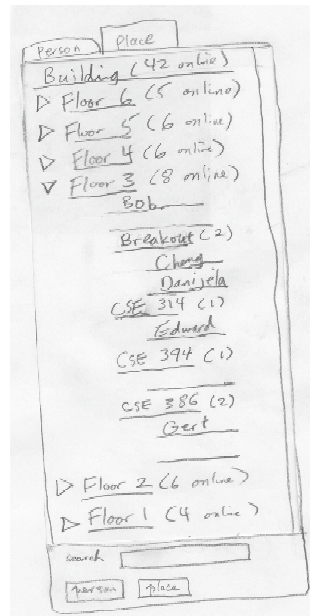 Person Place
Building (42 online)
Floor 6 (5 online)
Floor 5 (6 online)
Floor 4 (6 online)
Floor 3 (8 online)
Bob
Breakout (2)
Chong
Danijela
CSE 314 (1)
Edward
CSE 394 (1)
CSE 386 (2)
Gert
Floor 2 (6 online)
Floor 1 (4 online)
search
person place